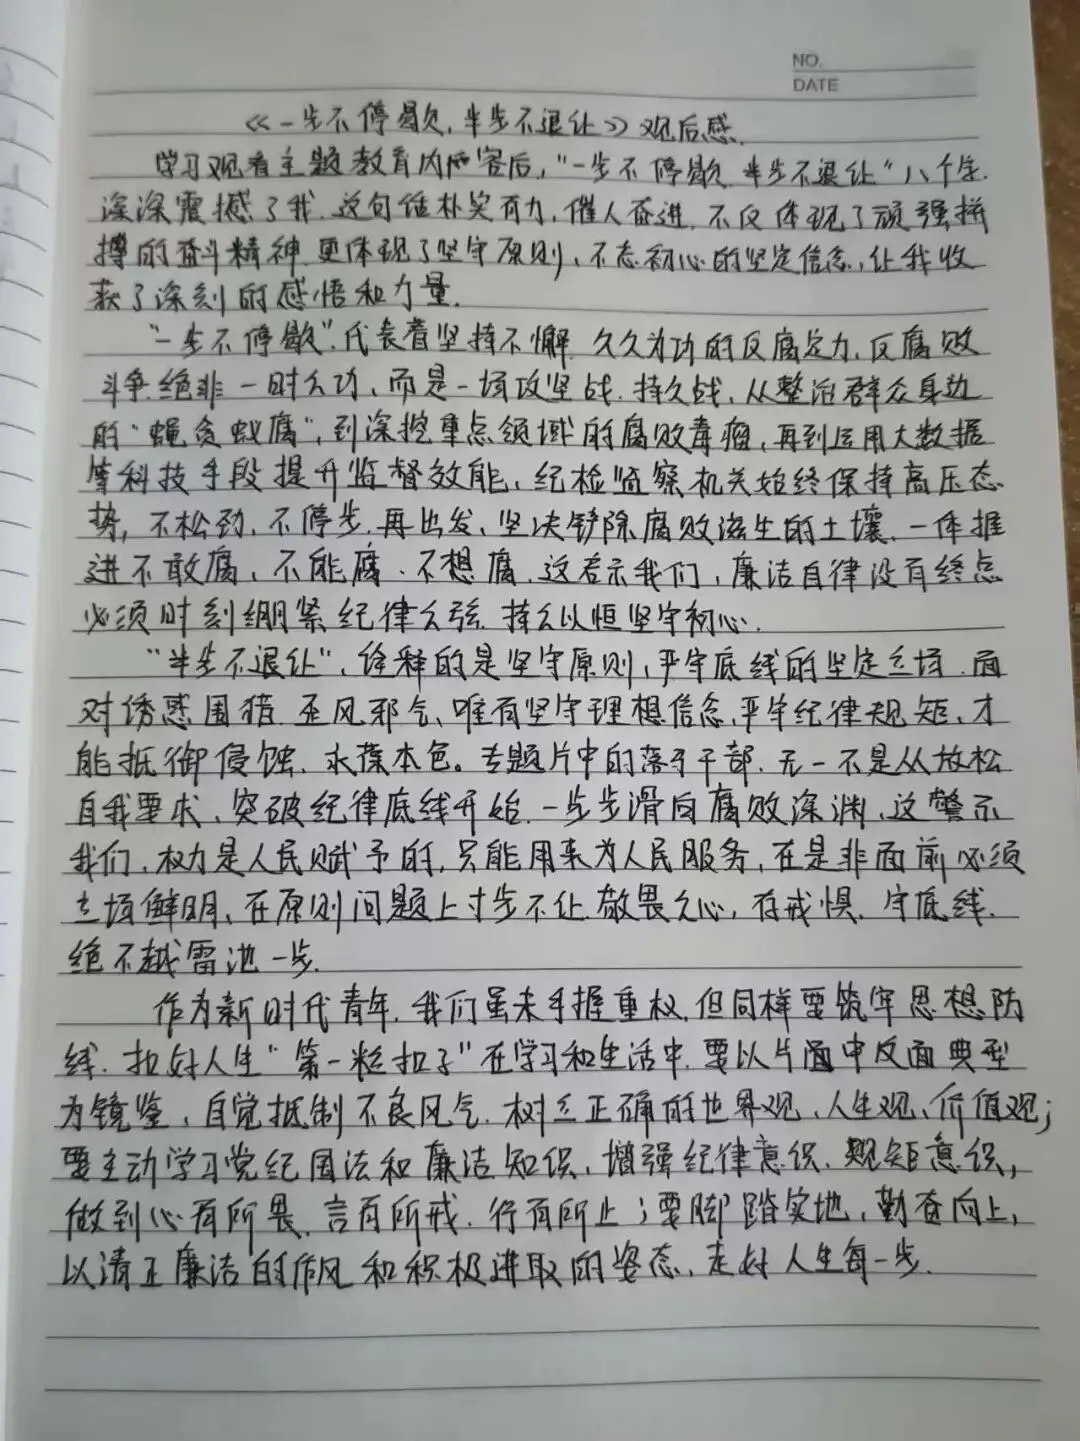 NO.
DATE
《一步不停歇,半步不退让》观后感.
学习观看主题教育内容后,"一步不停歇 半步不退让"八个字.
深深震撼了我.这句话朴实有力,催人奋进.不仅体现了顽强拼
搏的奋斗精神.更体现了坚守原则、不忘初心的坚定信念,让我收
获了深刻的感悟和力量.
"一步不停歇",代表着坚持不懈.久久为功的反腐定力,反腐败
斗争绝非一时之功,而是一场攻坚战.持久战,从整治群众身边
的"蝇贪蚁腐",到深挖重点领域的腐败毒瘤,再到运用大数据
等科技手段提升监督效能,纪检监察机关始终保持高压态
势,不松劲,不停步.再出发,坚决铲除腐败滋生的土壤.一体推
进不敢腐、不能腐.不想腐.这启示我们,廉洁自律没有终点
必须时刻绷紧纪律之弦.持之以恒坚守初心.
"半步不退让",诠释的是坚守原则,严守底线的坚定立场.面
对诱惑围猎.歪风邪气,唯有坚守理想信念,严守纪律规矩,才
能抵御侵蚀.永葆本色。专题片中的落马干部.无一不是从放松
自我要求、突破纪律底线开始.一步步滑向腐败深渊,这警示
我们,权力是人民赋予的,只能用来为人民服务,在是非面前必须
立场鲜明、在原则问题上寸步不让.敬畏之心,存戒惧.守底线.
绝不越雷池一步.
作为新时代青年.我们虽未手握重权,但同样要筑牢思想防
线.扣好人生"第一粒扣子"在学习和生活中.要以片面中反面典型
为镜鉴,自觉抵制不良风气.树立正确的世界观、人生观、价值观;
要主动学习党纪国法和廉洁知识,增强纪律意识.规矩意识,
做到心有所畏.言有所戒.行有所止;要脚踏实地,勤奋向上,
以清正廉洁的作风和积极进取的姿态,走好人生每一步.